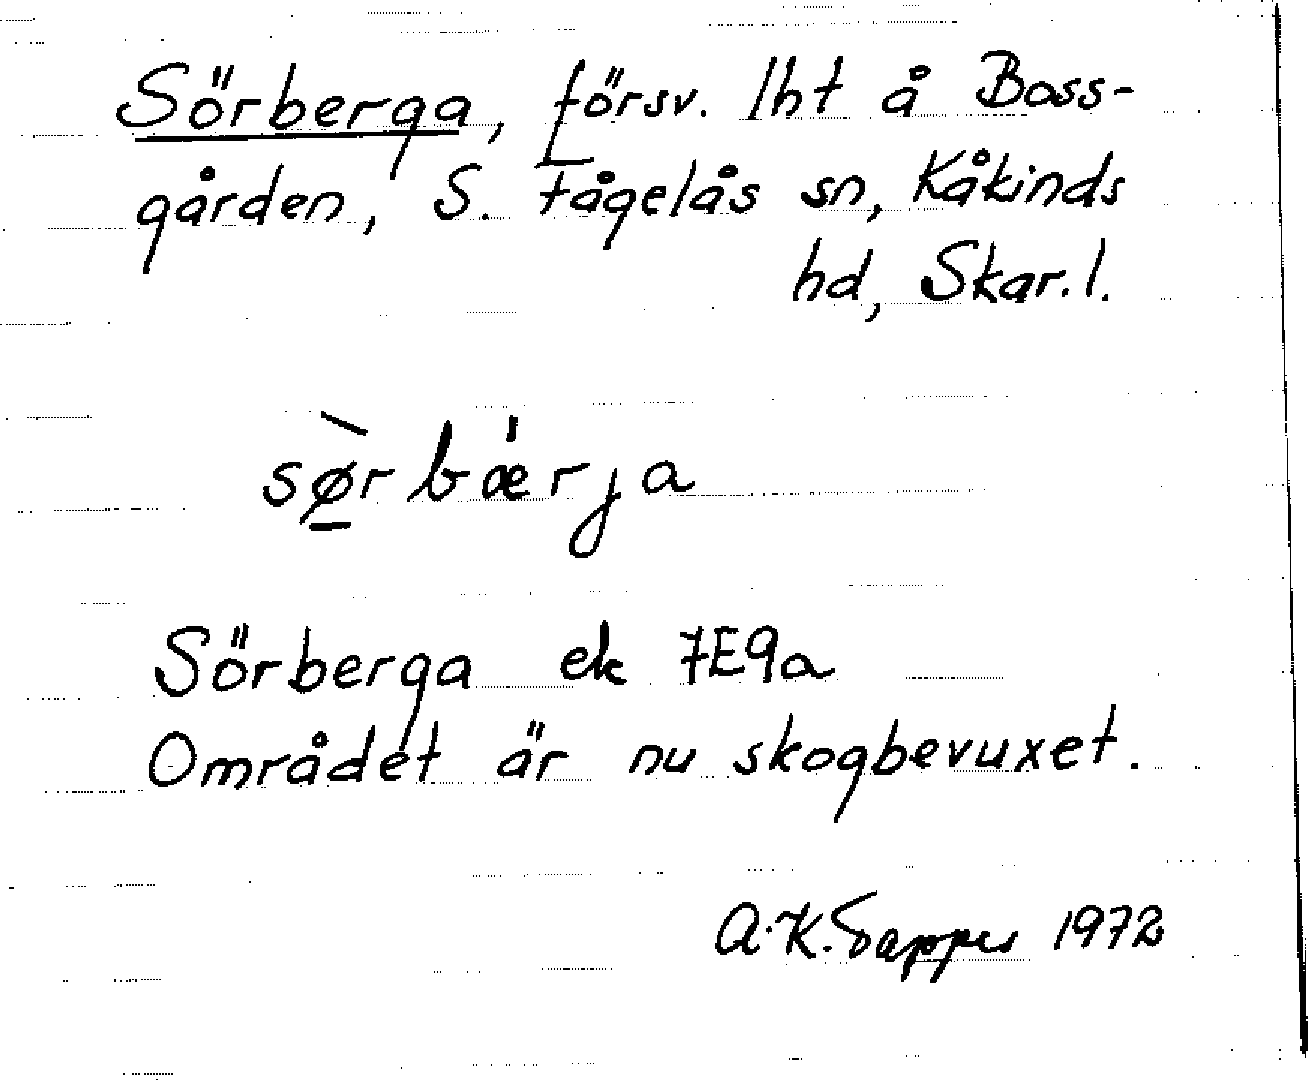 Sörberga, försv. lht å Boss-
gården, S. Fågelås sn, Kåkinds
hd, Skar.l.
sø̠̀rbæ̍rja
Sörberga ek 7E9a
Området är nu skogbevuxet.
A.K. 1972